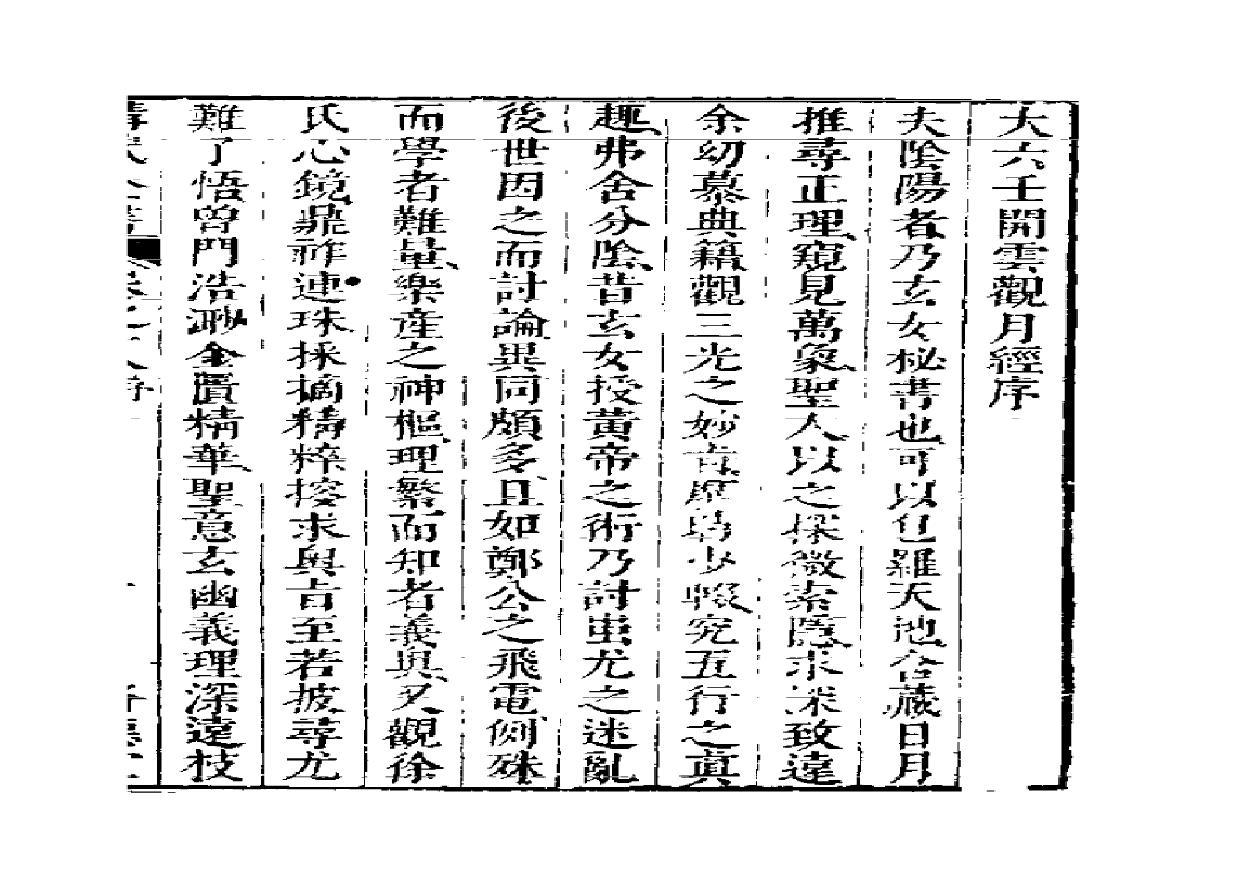 大六壬開雲觀月經序
夫陰陽者乃玄女秘書也可以包羅天地含藏日月
推尋正理窺見萬象聖人以之探微索隱求深致遠
余幼慕典籍觀三光之妙旨靡曷少輟究五行之眞
趣弗舍分陰昔玄女授黃帝之術乃討蚩尤之迷亂
後世因之而討論異同頗多且如鄭公之飛電例殊
而學者難量樂產之神樞理繁而知者義奧又觀徐
氏心鏡鼎祚連珠採摘精粹控求奥旨至若披尋尤
難了悟曾門浩渺金匱精華聖意玄幽義理深遠枝